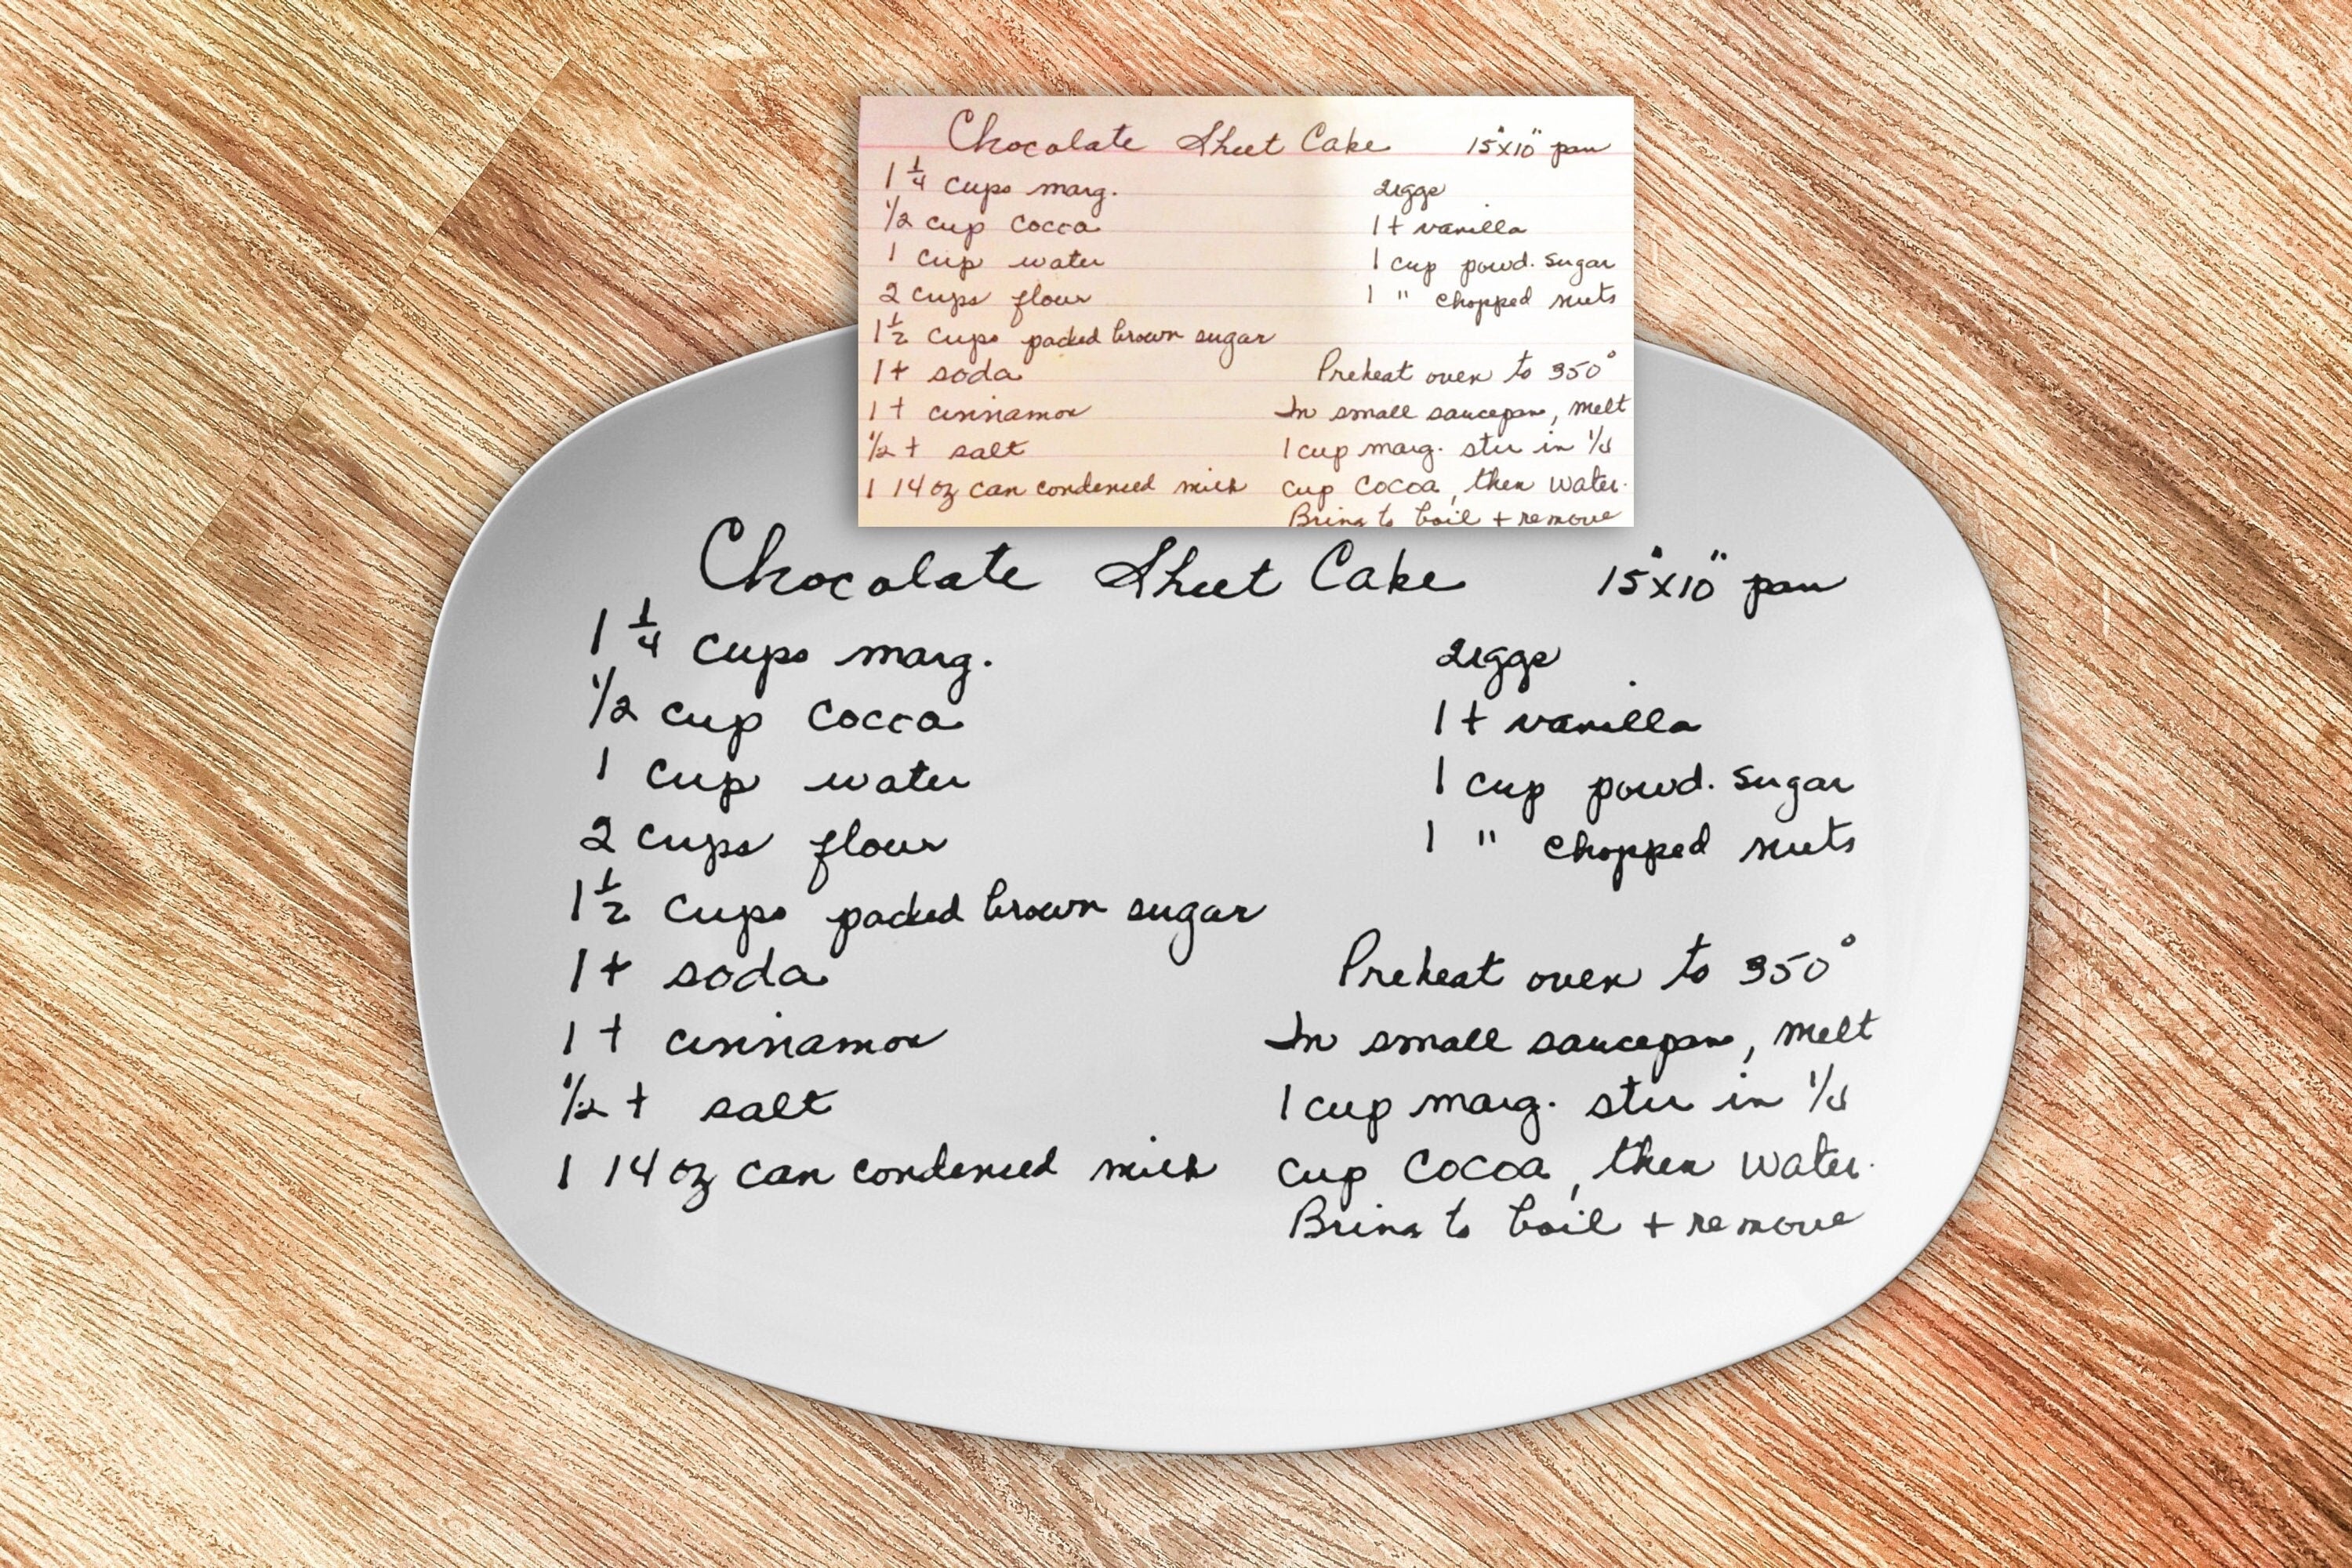 Chocolate Sheet Cake 15"x10" pan
1 1/4 cups marg.
1/2 cup cocoa
1 cup water
2 cups flour
1 1/2 cups packed brown sugar
1 t soda
1 t cinnamon
1/2 t salt
1 14 oz can condensed milk
2 eggs
1 t vanilla
1 cup powd. sugar
1 " chopped nuts
Preheat oven to 350°
In small saucepan, melt
1 cup marg. stir in
cup cocoa, then water.
Bring to boil + remove
Chocolate Sheet Cake 15"x10" pan
1 1/4 cups marg.
1/2 cup cocoa
1 cup water
2 cups flour
1 1/2 cups packed brown sugar
1 t soda
1 t cinnamon
1/2 t salt
1 14 oz can condensed milk
2 eggs
1 t vanilla
1 cup powd. sugar
1 " chopped nuts
Preheat oven to 350°
In small saucepan, melt
1 cup marg. stir in
cup cocoa, then water.
Bring to boil + remove